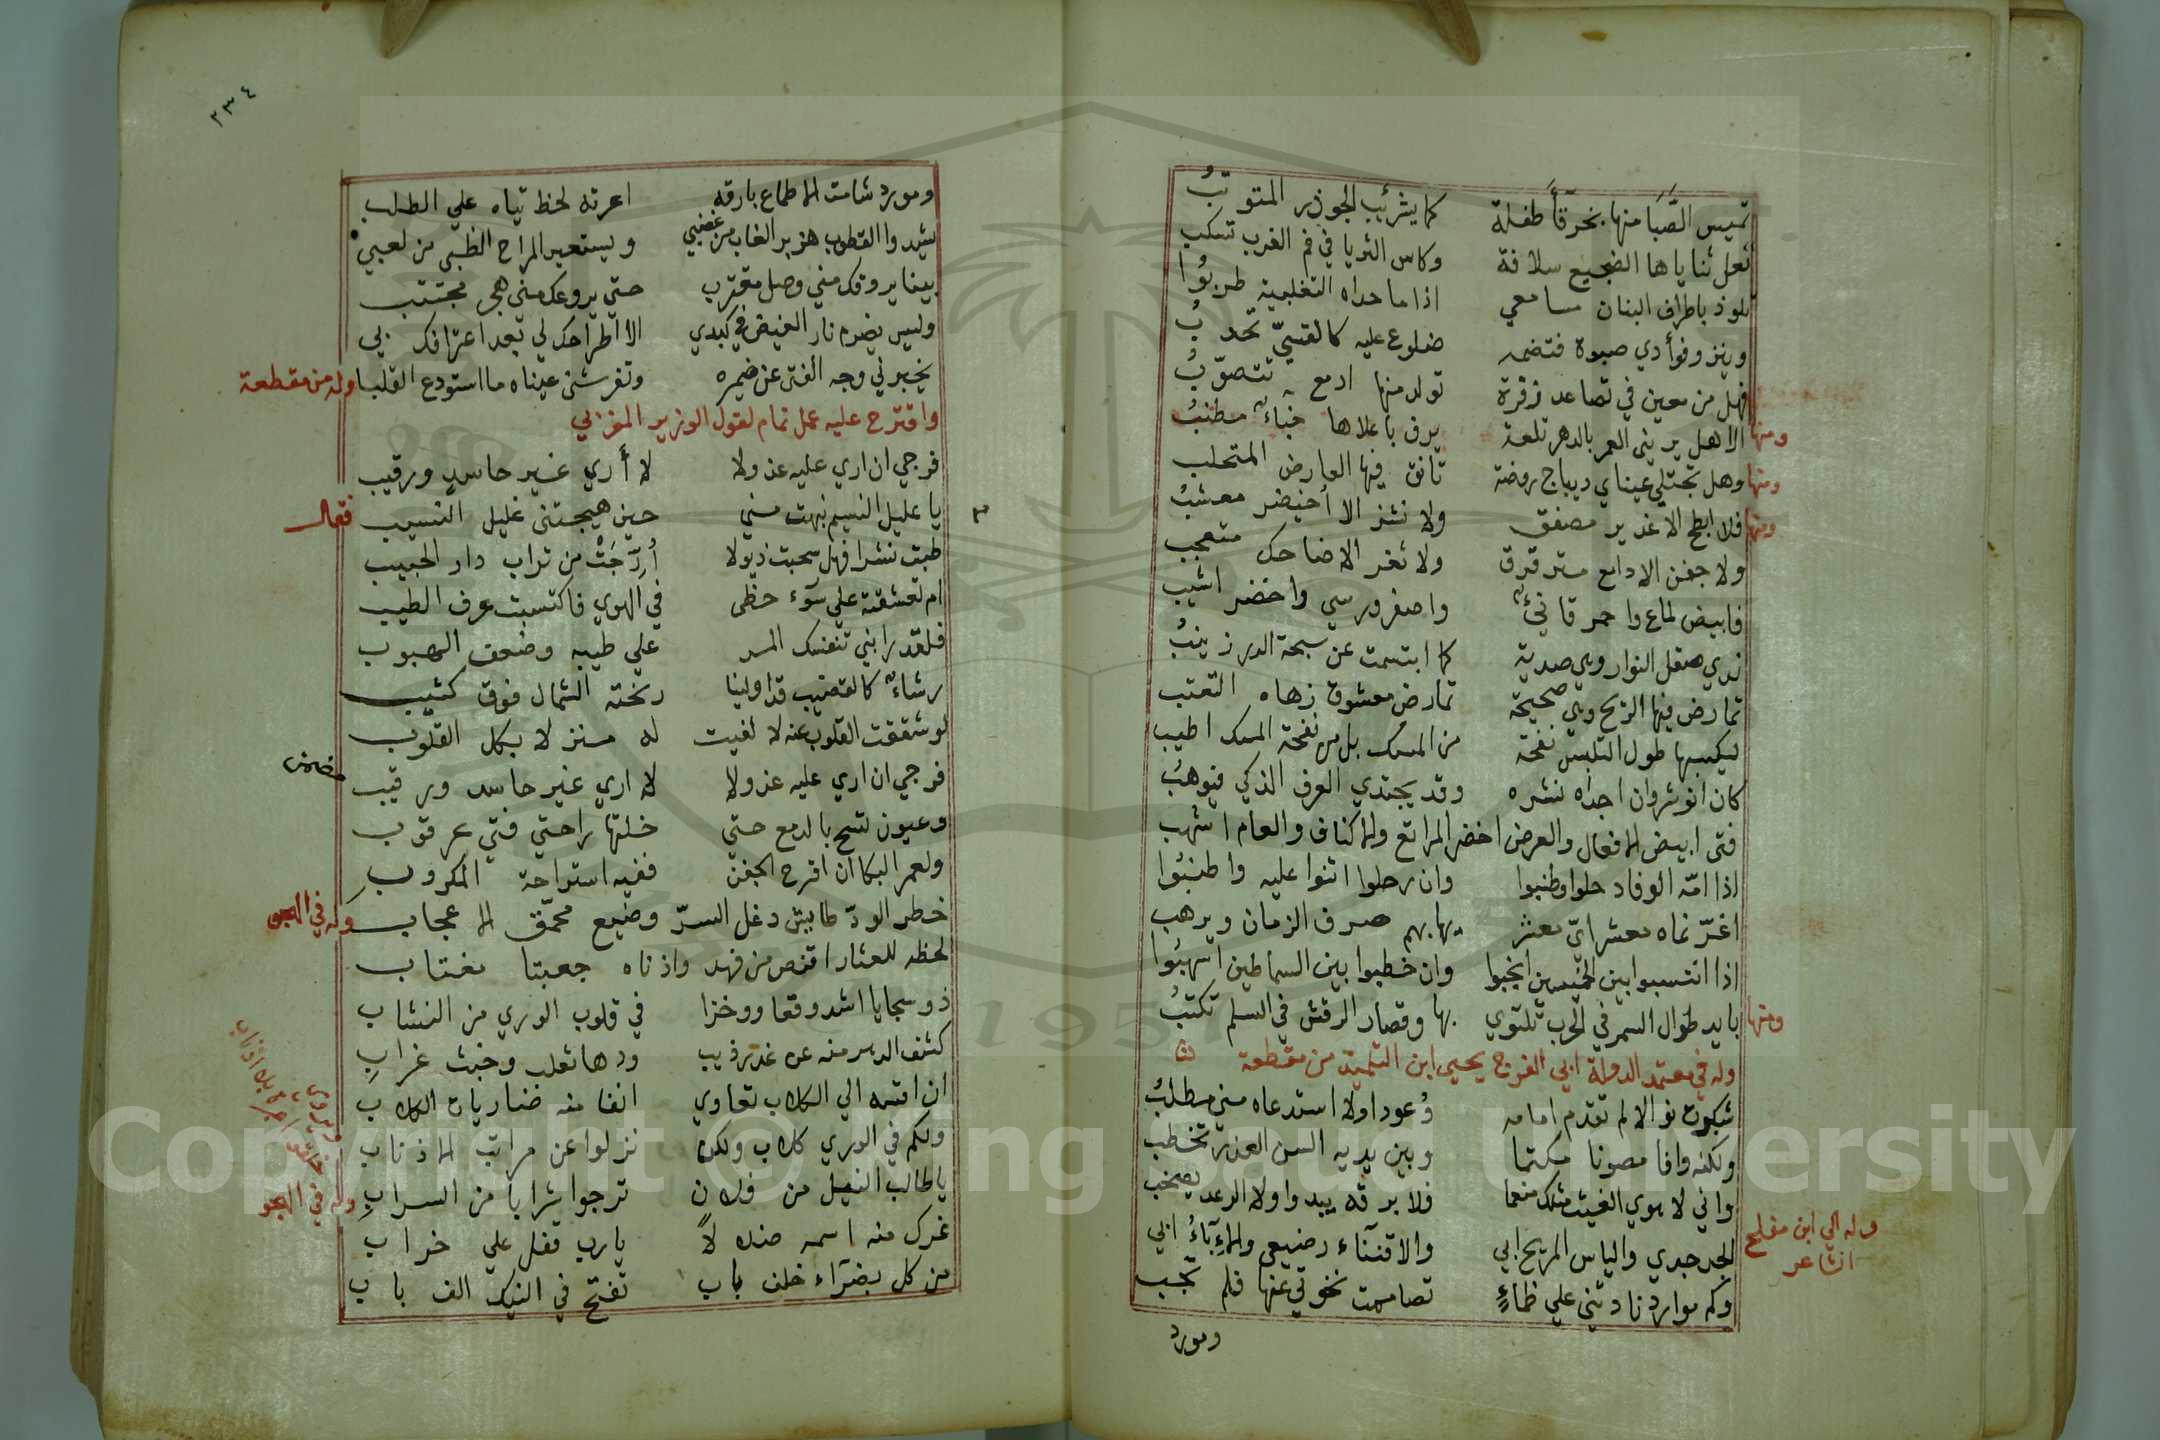 تميس الصَّبَا منها بخرقآً طفلة كما يشرئب الجوذر المتوثبُ
تعل ثناياها الضجيع سلافة وكاس الثريا في فم الغرب تسكب
تلوذ باطراف البنان مسامعي اذا ما حداه التغلبية طربُوا
وينزو فوأدي صبوة فتضمه ضلوع عليه كالقسيّ تحدبُ
فهل من معين في تصاعد زفرة تولد منها ادمع تتصوّبُ
ومنها الا هل يريني العمر بالدهر تلعة يرف باعلاها خباء مطنبُ
ومنها وهل تجتلي عيناي ديباج روضة تانق فيها العارض المتحلب
ومنها فلا ابطح الا غدير مصفق ولا نشز الا أخيضر معشبُ
ولا جفن الا دامع مترقرق ولا ثغر الا ضاحك متعجب
فابيض لماع واحمر قانئ واصفر ورسي واخضر اشيب
ندي صقل النوار وهي صدية كما ابتسمت عن سبحة الدر زينبُ
تمارض فيها الريح وهي صحيحة تمارض معشوق زهاه التعتب
ليكسبها طول التلبس نفحة من المسك بل من نفحة المسك اطيب
كان انوشروان اجداه نشره وقد يجتدي العرف الذكي فيوهبُ
فتى ابيض الافعال والعرض اخضر المراتع والاكناف والعام اشهب
اذا امّه الوفاد حلوا وطنبوا وان رحلوا اثنوا عليه واطنبُوا
اغرّ نماه معشر ايّ معشر يهابهم صرف الزمان ويرهب
اذا انتسبوا بين الخميسين انجبوا وان خطبوا بين السماطين اسهبُوا
ومنها بايد طوال السمر في الحرب تلتوي بها وقصار الرقش في السلم تكتبُ
وله في معتمد الدولة ابي الفرج يحيى ابن التلميذ من مقطعة
شكوت نوالا لم تقدم امامه وُعود اولا استدعاه مني مطلبُ
ولكنه وافا مصونا مكتما وبين يديه السن العذر تخطب
واني لاهوي الغيث مثلك منعما فلا برقه يبدوا ولا الرعد يصخب
وله الي ابن مفلح الشاعر
الجد جدي والياس المريح ابي والاقتناء رضيعي والإبآءُ ابي
وكم موارد نادتني علي ظماءٍ تصاممت نخوتي عنها فلم تجب
ومورد
٢٣٤
ومورد شامت الاطماع بارقه اعرته لحظ تياه علي الطلب
يشدوا القطوب هزبر الغاب من غضبي ويستعير المراح الظبي من لعبي
بينا يروقك مني وصل مقترب حتي يروعك مني هجر مجتنب
وليس يضرم نار الغيض في كبدي الا اطراحك لي بعد اعترافك بي
وله من مقطعة يخبرني وجه الفتى عن ضميره وتفرشني عيناه ما استودع القلبا
واقترح عليه عمل تمام لقول الوزير المغربي
فرجي ان اري عليه عذولا لا أري غير حاسد ورقيب
فقال يا عليل النسيم نبهت مني حين هيجتني غليل النسيب
طبت نشرا فهل سحبت ذيولا أُرِّجَتْ من تراب دار الحبيب
ام تعشقته علي سوء حظي في الهوي فاكتسبت عرف الطيب
فلقد رابني تنفسك المسـ ـكي علي طيبه وضعف الهبوب
رشاء كالقضيب قدا ولينا رنحته الشمال فوق كثيب
لو شققت القلوب عنه لالفيت له منزلا بكل القلوب
فرجي ان اري عليه عذولا لا اري غير حاسد ورقيب
وعيون تسح بالدمع حتي خلتها راحتي فتي عرقوب
ولعمر البكا ان اقرح الجفن ففيه استراحة المكروب
وله في الهجو خطر الود طايش دغل السرّ وضيع محمّق الاعجاب
لحظه للعثار اقنص من فهد واذناه جعبتا مغتاب
ذو سجايا اشد وقعا ووخزا في قلوب الوري من النشاب
كشف الدهر منه عن غدر ذيب ودها ثعلب وخبث غرابِ
ان انتمه الي الكلاب تعاوي انفا منه ضاريات الكلاب
ولكم في الوري كلاب ولكن نزلوا عن مراتب الاذناب
وله في الهجو يا طالب النيل من فلان ترجوا شرابا من السرابِ
غرك منه اسمه ضلالاً يا رب قفل علي خراب
من كل بضرآء خلف باب تفتح في النيك الف باب